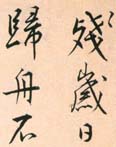 殘歲日
歸舟石